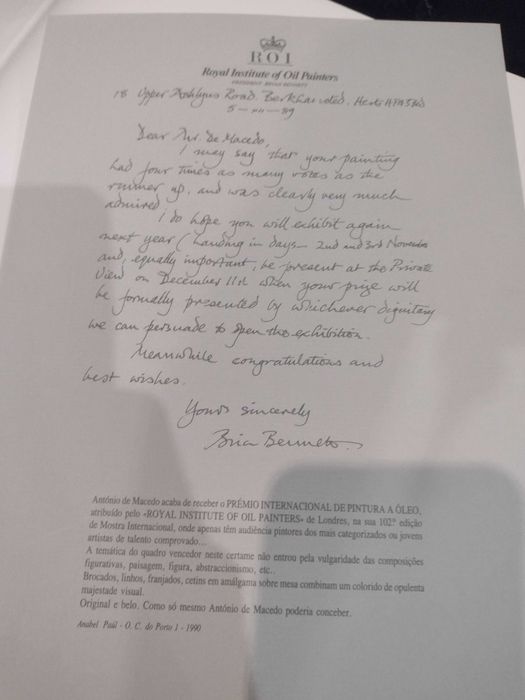 ROI
Royal Institute of Oil Painters
PRESIDENT BRIAN BENNETT
18 Upper Road. Berkhamsted. Herts
5 - - 89
Dear Mr. de Macedo,
I may say that your painting
had four times as many votes as the
runner up, and was clearly very much
admired.
I do hope you will exhibit again
next year (handing in days - 2nd and 3rd November
and, equally important, be present at the Private
View on December 11th when your prize will
be formally presented by whichever dignitary
we can persuade to open the exhibition.
Meanwhile congratulations and
best wishes.
Yours sincerely
Brian Bennett.
António de Macedo acaba de receber o PRÉMIO INTERNACIONAL DE PINTURA A ÓLEO,
atribuído pelo «ROYAL INSTITUTE OF OIL PAINTERS» de Londres, na sua 102.ª edição
de Mostra Internacional, onde apenas têm audiência pintores dos mais categorizados ou jovens
artistas de talento comprovado...
A temática do quadro vencedor neste certame não entrou pela vulgaridade das composições
figurativas, paisagem, figura, abstraccionismo, etc..
Brocados, linhos, franjados, cetins em amálgama sobre mesa combinam um colorido de opulenta
majestade visual.
Original e belo. Como só mesmo António de Macedo poderia conceber.
Anabel Paúl - O. C. do Porto 1 - 1990